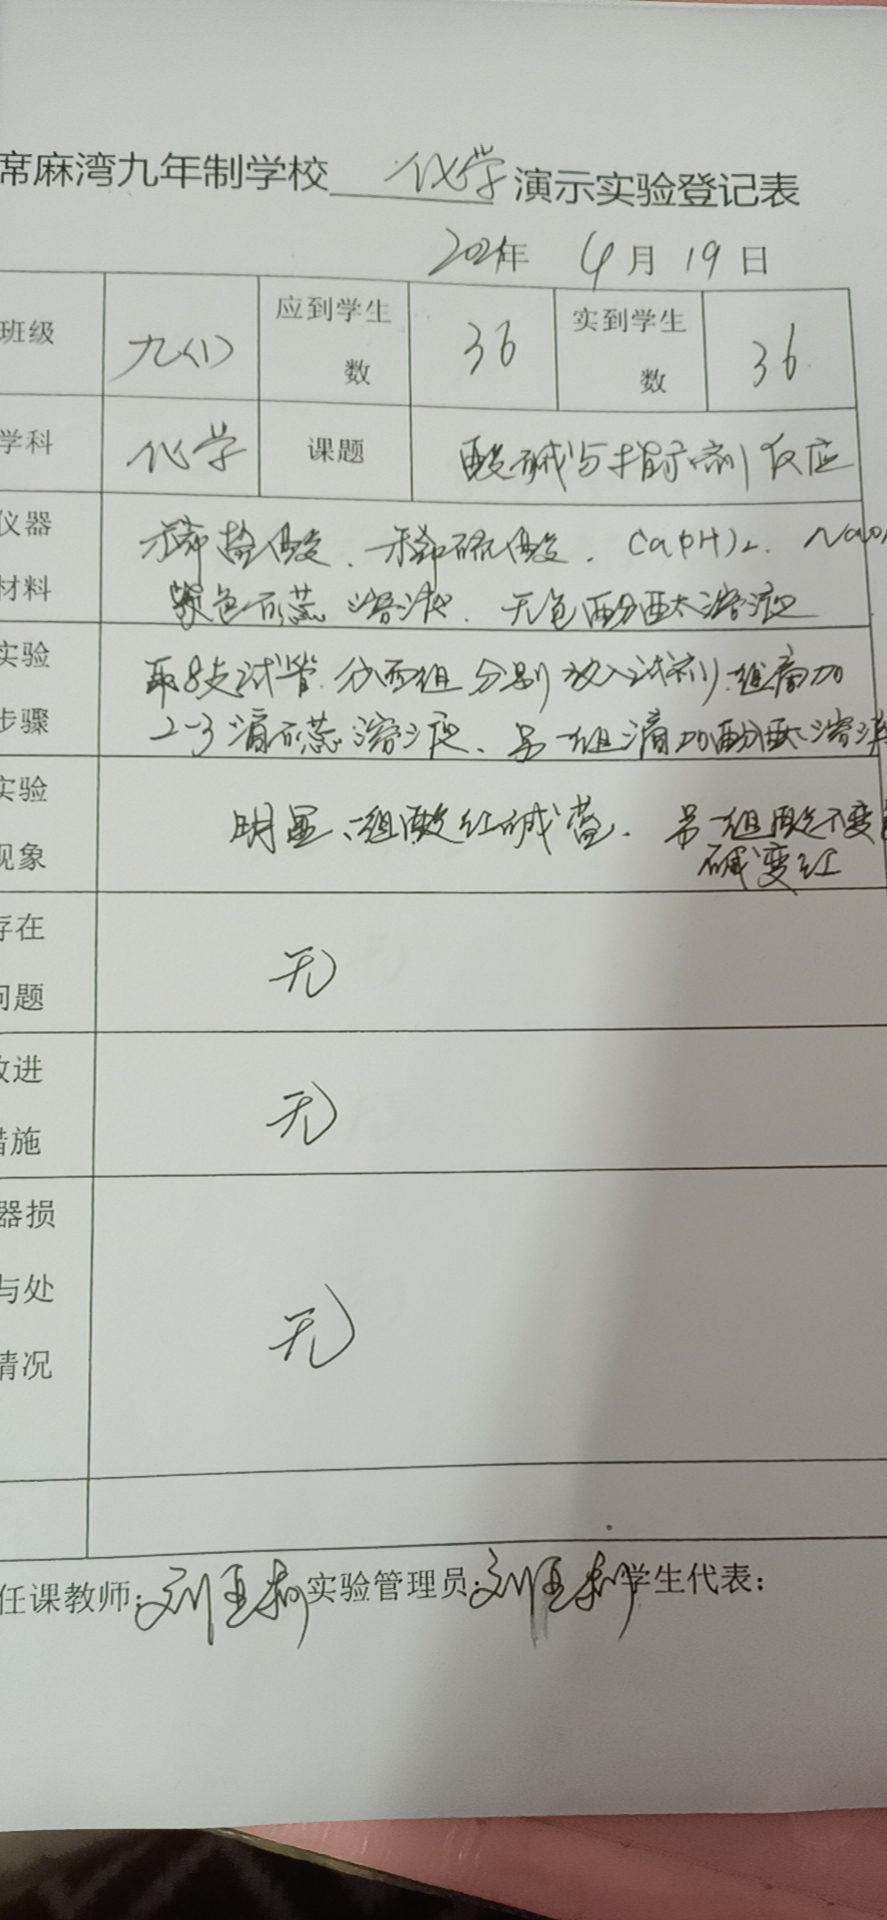 席麻湾九年制学校 化学 演示实验登记表
2021年 4月19日
班级 九(1) 应到学生数 36 实到学生数 36
学科 化学 课题 酸碱与指示剂反应
仪器 稀盐酸、稀硫酸、Ca(OH)2、NaO
材料 紫色石蕊溶液、无色酚酞溶液
实验 取8支试管.分两组分别放入试剂.一组滴加
步骤 2-3滴石蕊溶液、另一组滴加酚酞溶液
实验 明显、一组酸红碱蓝. 另一组酸不变
现象 碱变红
存在
问题 无
改进
措施 无
器损
与处 无
情况
任课教师: 实验管理员: 学生代表: